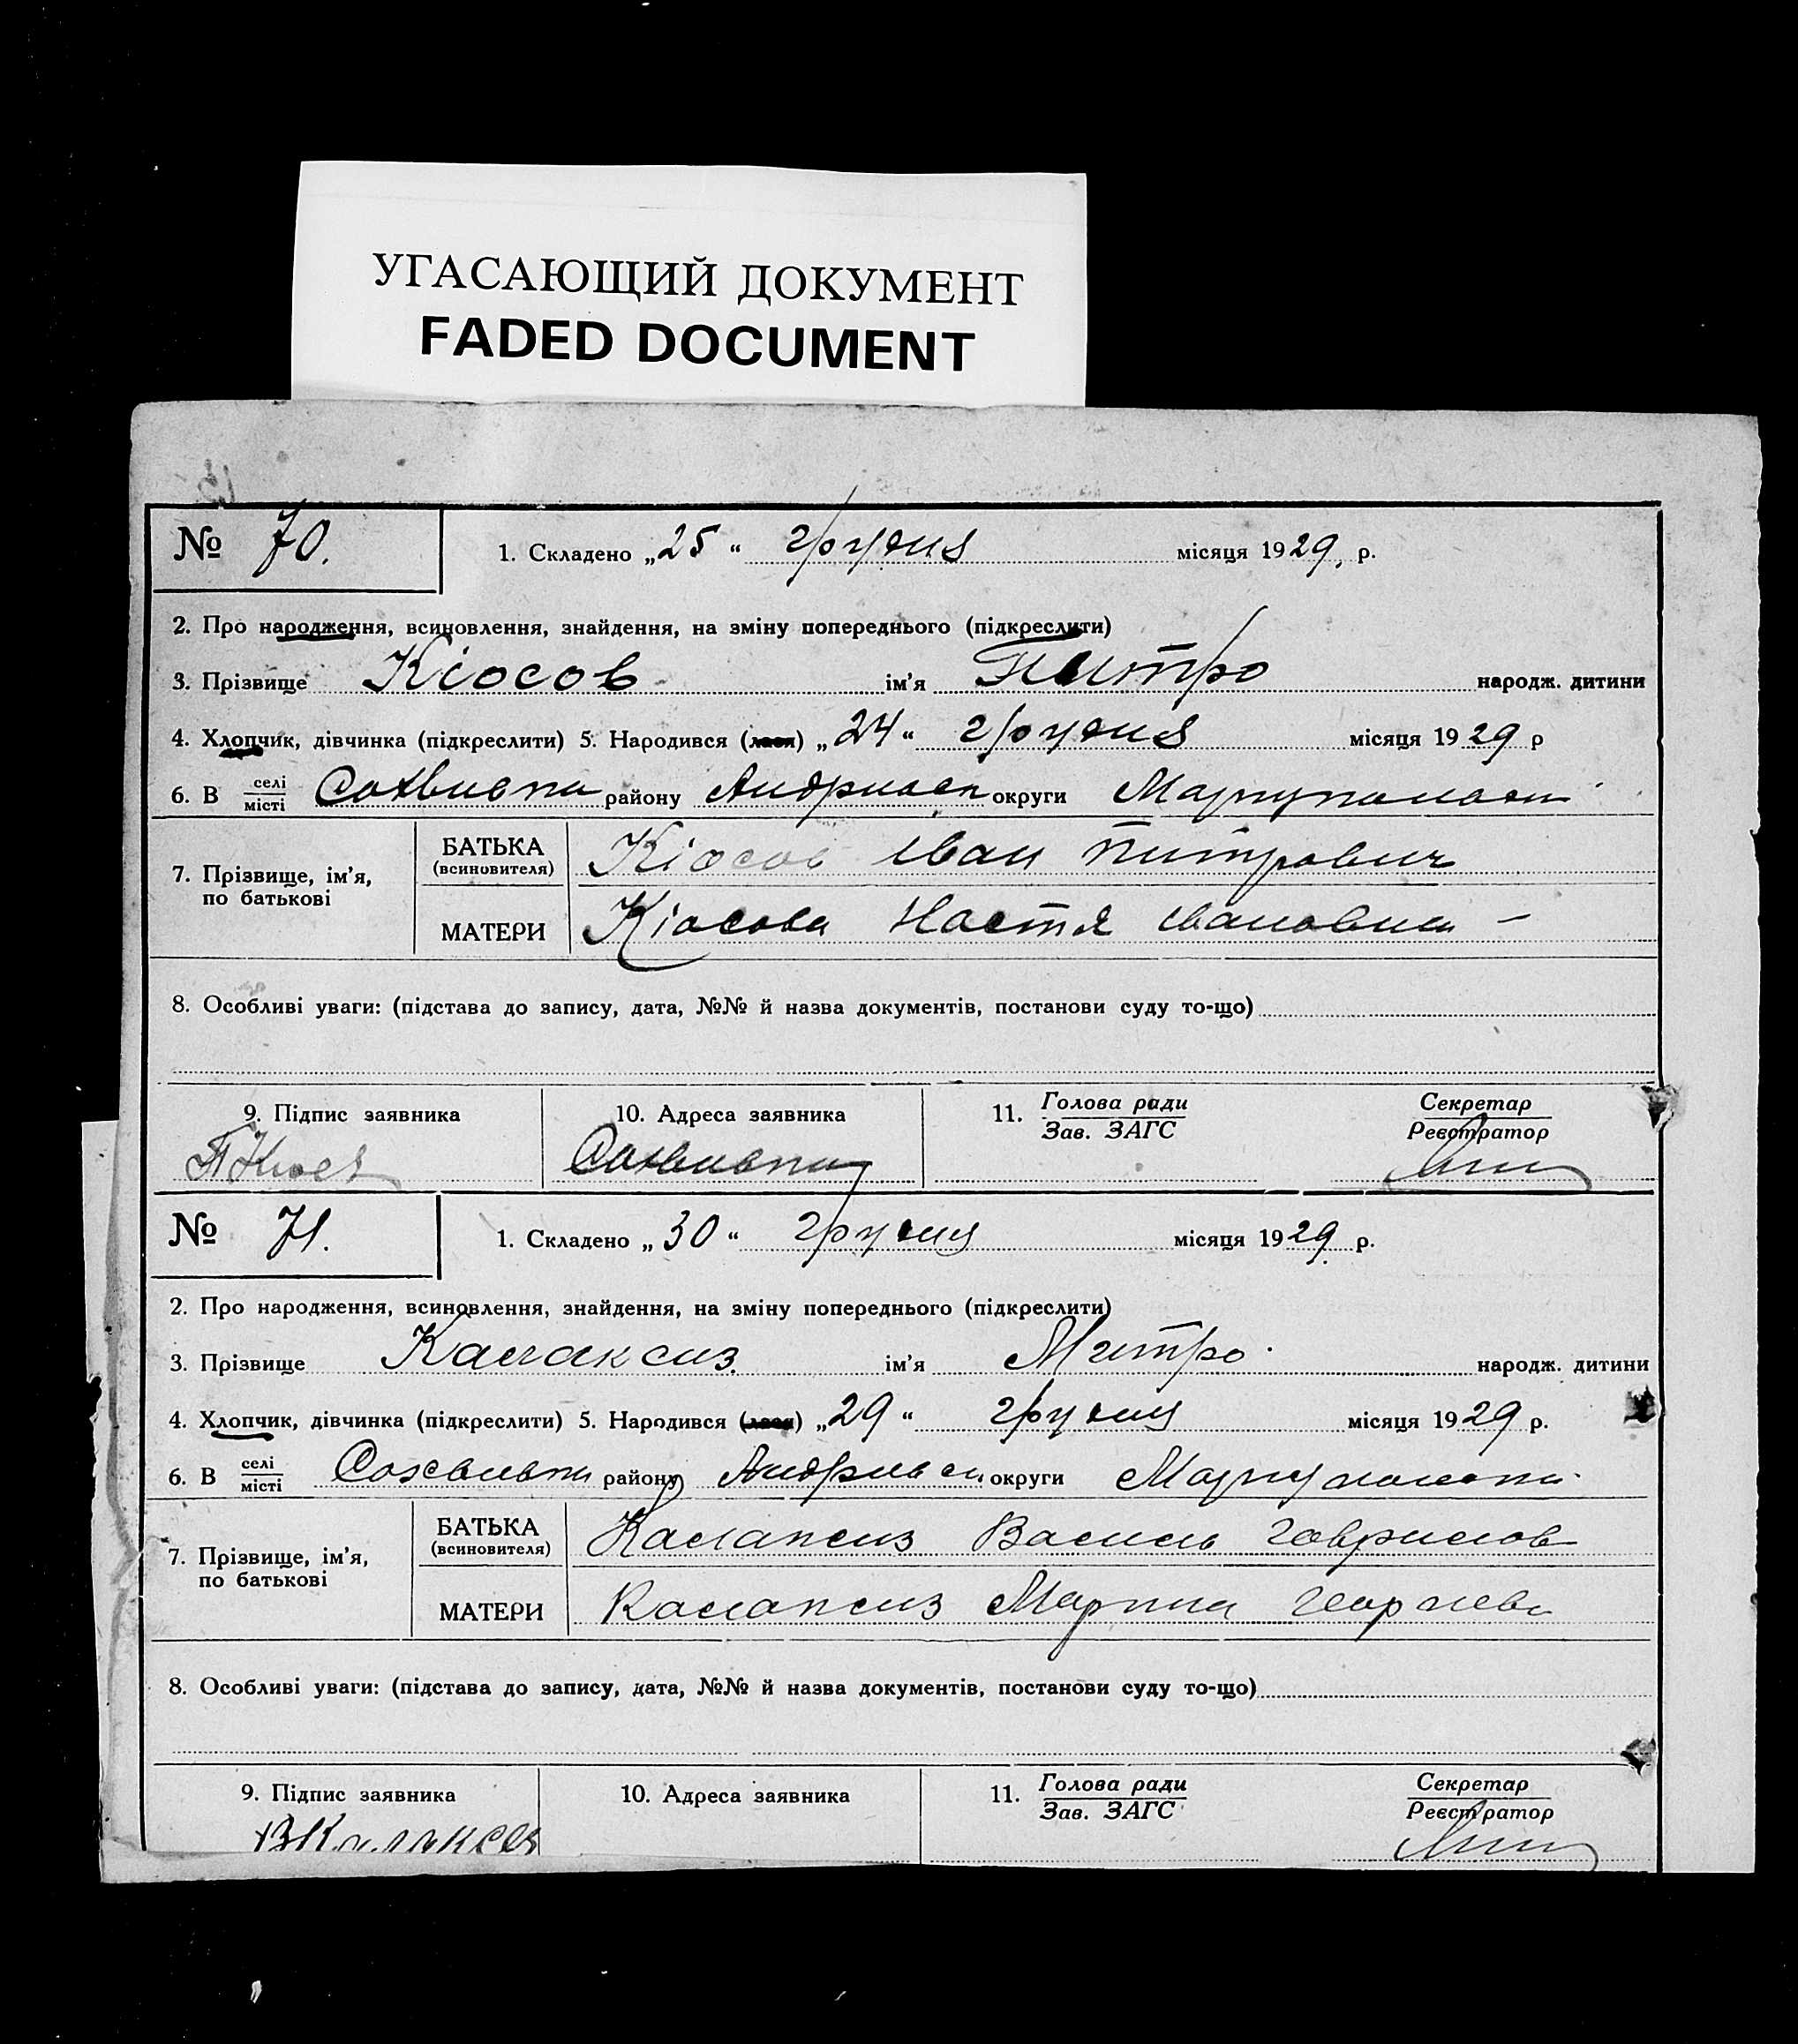 УГАСАЮЩИЙ ДОКУМЕНТ
FADED DOCUMENT
№ 70. 1. Складено „25“ грудня місяця 1929, р.
2. Про народження, всиновлення, знайдення, на зміну попереднього (підкреслити)
3. Прізвище Кіосов ім’я Питро народж. дитини
4. Хлопчик, дівчинка (підкреслити) 5. Народився (лася) „24“ грудня місяця 1929 р
6. В селі/місті району округи
7. Прізвище, ім’я, по батькові
БАТЬКА (всиновителя) Кіосов Іван Питрович
МАТЕРИ Кіосова Настя Івановна –
8. Особливі уваги: (підстава до запису, дата, №№ й назва документів, постанови суду то-що)
9. Підпис заявника 10. Адреса заявника 11. Голова ради/Зав. ЗАГС Секретар/Реєстратор
№ 71. 1. Складено „30“ грудня місяця 1929. р.
2. Про народження, всиновлення, знайдення, на зміну попереднього (підкреслити)
3. Прізвище ім’я Митро народж. дитини
4. Хлопчик, дівчинка (підкреслити) 5. Народився (лася) „29“ грудня місяця 1929 р.
6. В селі/місті району округи
7. Прізвище, ім’я, по батькові
БАТЬКА (всиновителя) Василь Гаврилов
МАТЕРИ
8. Особливі уваги: (підстава до запису, дата, №№ й назва документів, постанови суду то-що)
9. Підпис заявника 10. Адреса заявника 11. Голова ради/Зав. ЗАГС Секретар/Реєстратор